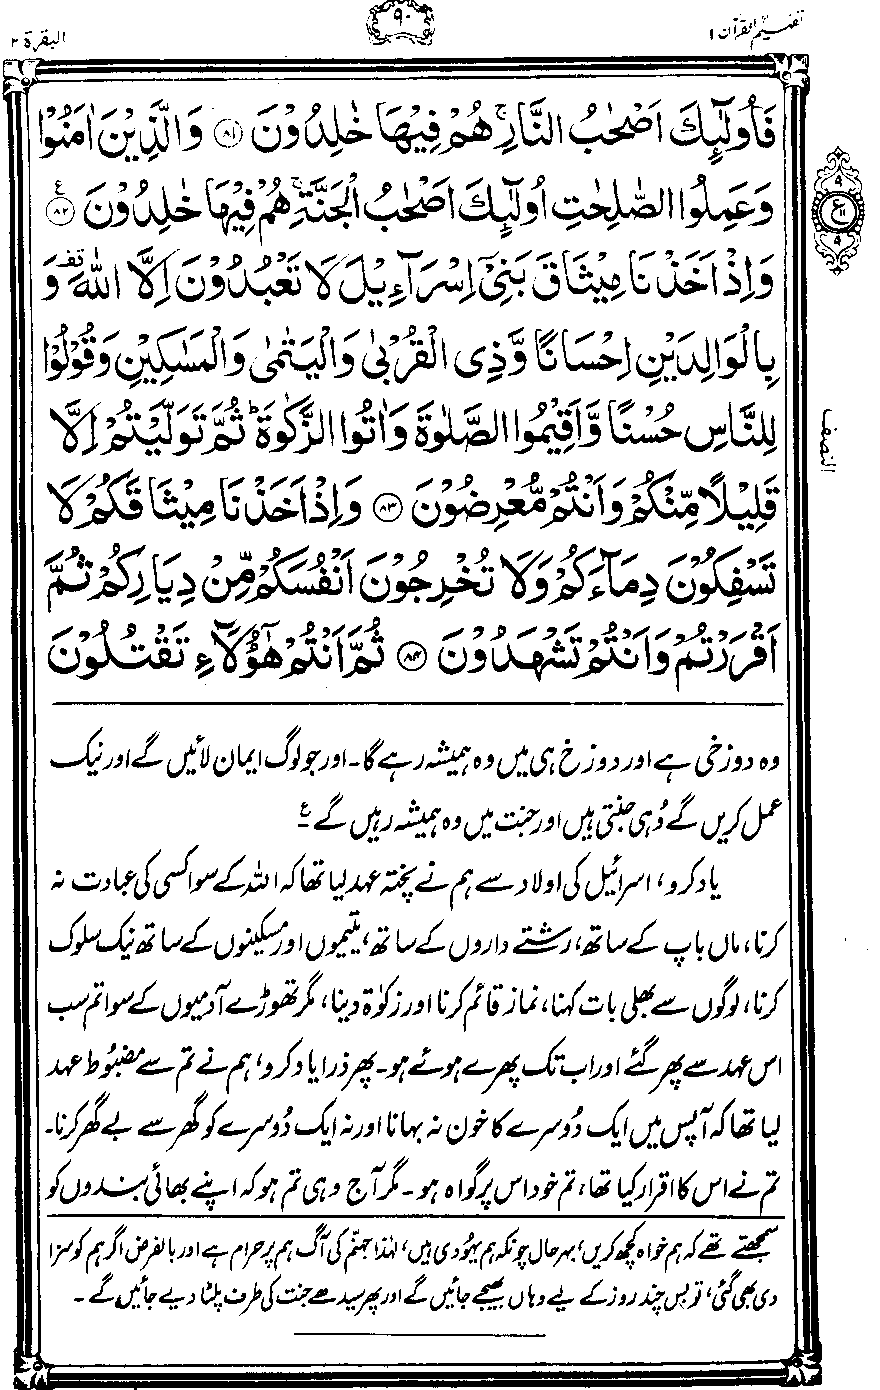 تفہیم القرآن ۱
۹۰
البقرۃ ۲
فَاُولٰٓئِكَ اَصْحٰبُ النَّارِ ۚ هُمْ فِيْهَا خٰلِدُوْنَ ﴿۸۱﴾ وَالَّذِيْنَ اٰمَنُوْا
وَعَمِلُوا الصّٰلِحٰتِ اُولٰٓئِكَ اَصْحٰبُ الْجَنَّةِ ۚ هُمْ فِيْهَا خٰلِدُوْنَ ﴿۸۲﴾ ع
وَاِذْ اَخَذْنَا مِيْثَاقَ بَنِيْٓ اِسْرَآءِيْلَ لَا تَعْبُدُوْنَ اِلَّا اللّٰهَ وقف وَ
بِالْوَالِدَيْنِ اِحْسَانًا وَّذِي الْقُرْبٰى وَالْيَتٰمٰى وَالْمَسٰكِيْنِ وَقُوْلُوْا
لِلنَّاسِ حُسْنًا وَّاَقِيْمُوا الصَّلٰوةَ وَاٰتُوا الزَّكٰوةَ ؕ ثُمَّ تَوَلَّيْتُمْ اِلَّا
قَلِيْلًا مِّنْكُمْ وَاَنْتُمْ مُّعْرِضُوْنَ ﴿۸۳﴾ وَاِذْ اَخَذْنَا مِيْثَاقَكُمْ لَا
تَسْفِكُوْنَ دِمَآءَكُمْ وَلَا تُخْرِجُوْنَ اَنْفُسَكُمْ مِّنْ دِيَارِكُمْ ثُمَّ
اَقْرَرْتُمْ وَاَنْتُمْ تَشْهَدُوْنَ ﴿۸۴﴾ ثُمَّ اَنْتُمْ هٰٓؤُلَآءِ تَقْتُلُوْنَ
۹
ع
۱۱
۹
النصف
وہ دوزخی ہے اور دوزخ ہی میں وہ ہمیشہ رہے گا۔ اور جو لوگ ایمان لائیں گے اور نیک
عمل کریں گے وُہی جنتی ہیں اور جنت میں وہ ہمیشہ رہیں گے ؏
یاد کرو، اسرائیل کی اولاد سے ہم نے پختہ عہد لیا تھا کہ اللہ کے سوا کسی کی عبادت نہ
کرنا، ماں باپ کے ساتھ، رشتے داروں کے ساتھ، یتیموں اور مسکینوں کے ساتھ نیک سلوک
کرنا، لوگوں سے بھلی بات کہنا، نماز قائم کرنا اور زکوٰۃ دینا، مگر تھوڑے آدمیوں کے سوا تم سب
اس عہد سے پھر گئے اور اب تک پھرے ہوئے ہو۔ پھر ذرا یاد کرو، ہم نے تم سے مضبُوط عہد
لیا تھا کہ آپس میں ایک دُوسرے کا خون نہ بہانا اور نہ ایک دُوسرے کو گھر سے بے گھر کرنا۔
تم نے اس کا اقرار کیا تھا، تم خود اس پر گواہ ہو۔ مگر آج وہی تم ہو کہ اپنے بھائی بندوں کو
سمجھتے تھے کہ ہم خواہ کچھ کریں، بہر حال چونکہ ہم یہُودی ہیں، لہٰذا جہنّم کی آگ ہم پر حرام ہے اور بالفرض اگر ہم کو سزا
دی بھی گئی، تو بس چند روز کے لیے وہاں بھیجے جائیں گے اور پھر سیدھے جنت کی طرف پلٹا دیے جائیں گے۔